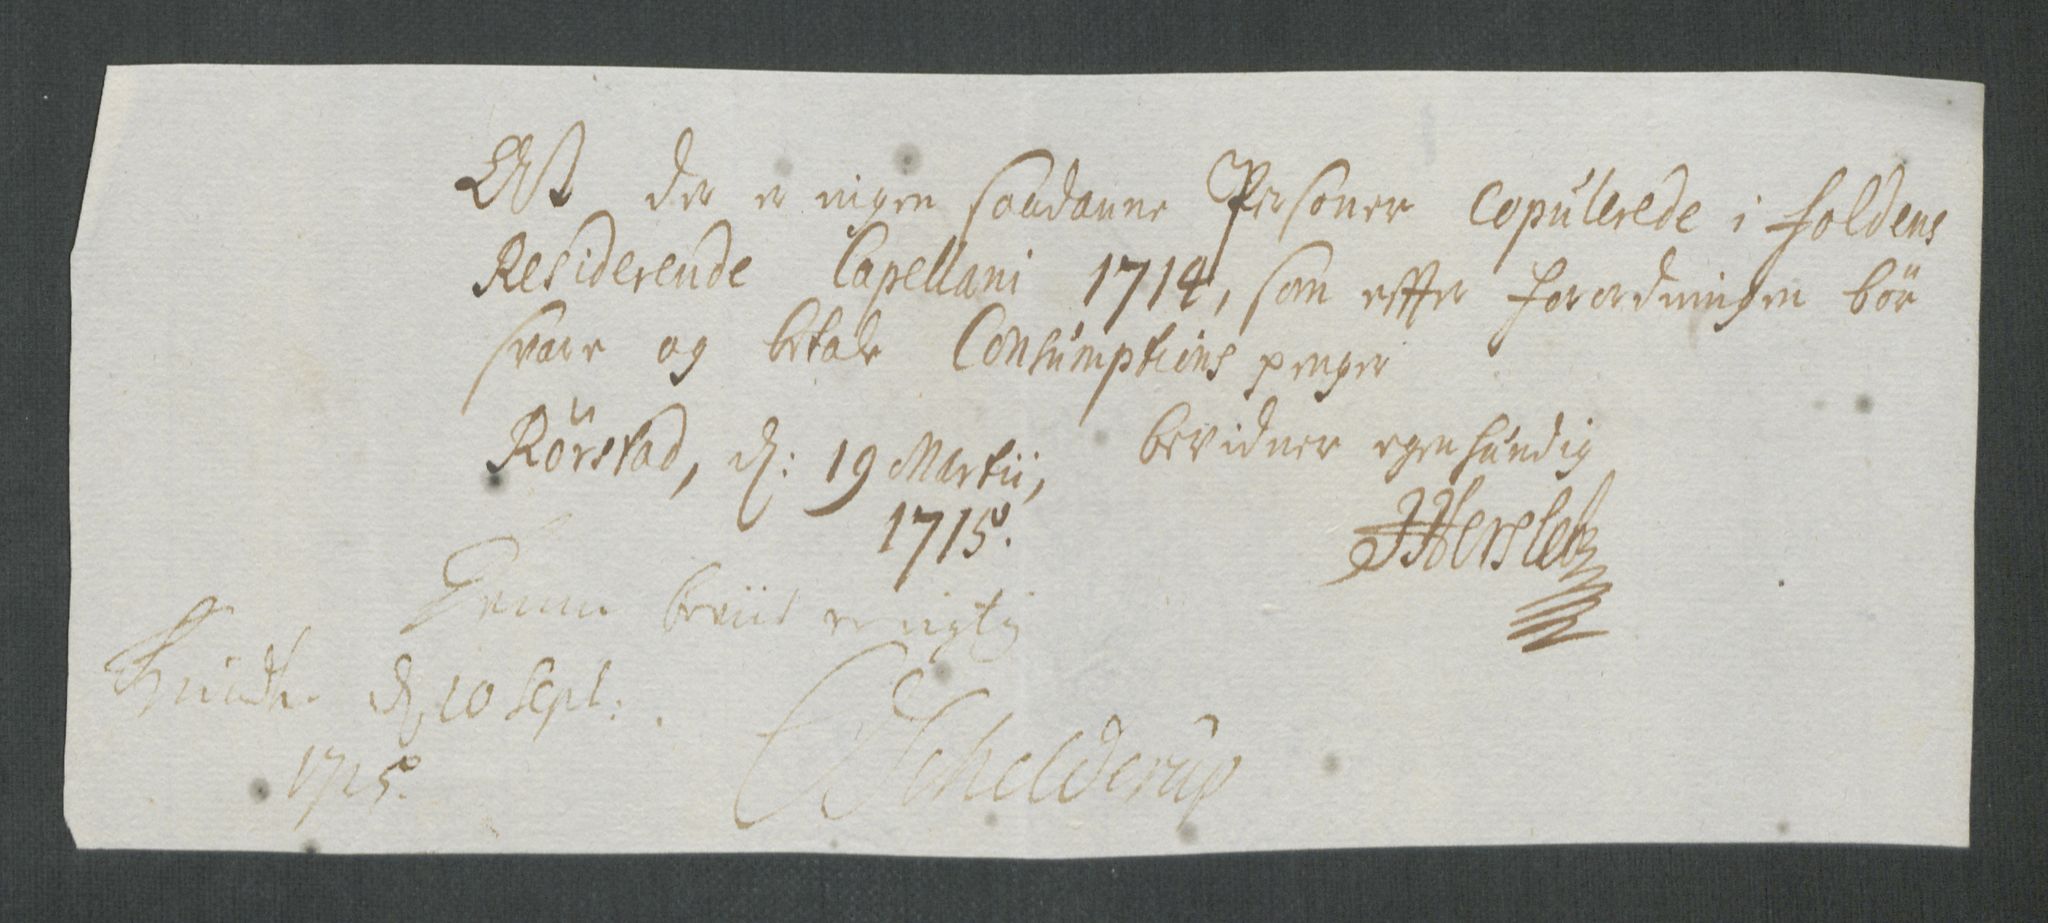 At der er ingen saadanne Personer Copulerede i Foldens
Residerende Capellani 1714, som effter Forordningen bör
svare og betale Consumptions penger
Rörstad, d: 19 Martii, bevidner egenhændig
1715. JHersleb
Denne beviis er rigtig
d 10 Sept:
1715. Schelderup